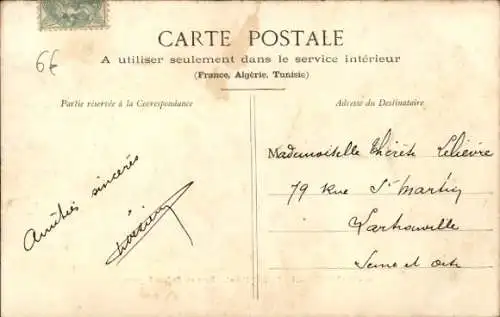 CARTE POSTALE
A utiliser seulement dans le service intérieur
(France, Algérie, Tunisie)
6€
Partie réservée à la Correspondance
Adresse du Destinataire
Mademoiselle Thérèse Lelièvre
79 Rue St Martin
Sartrouville
Seine et Oise
Amitiés sincères